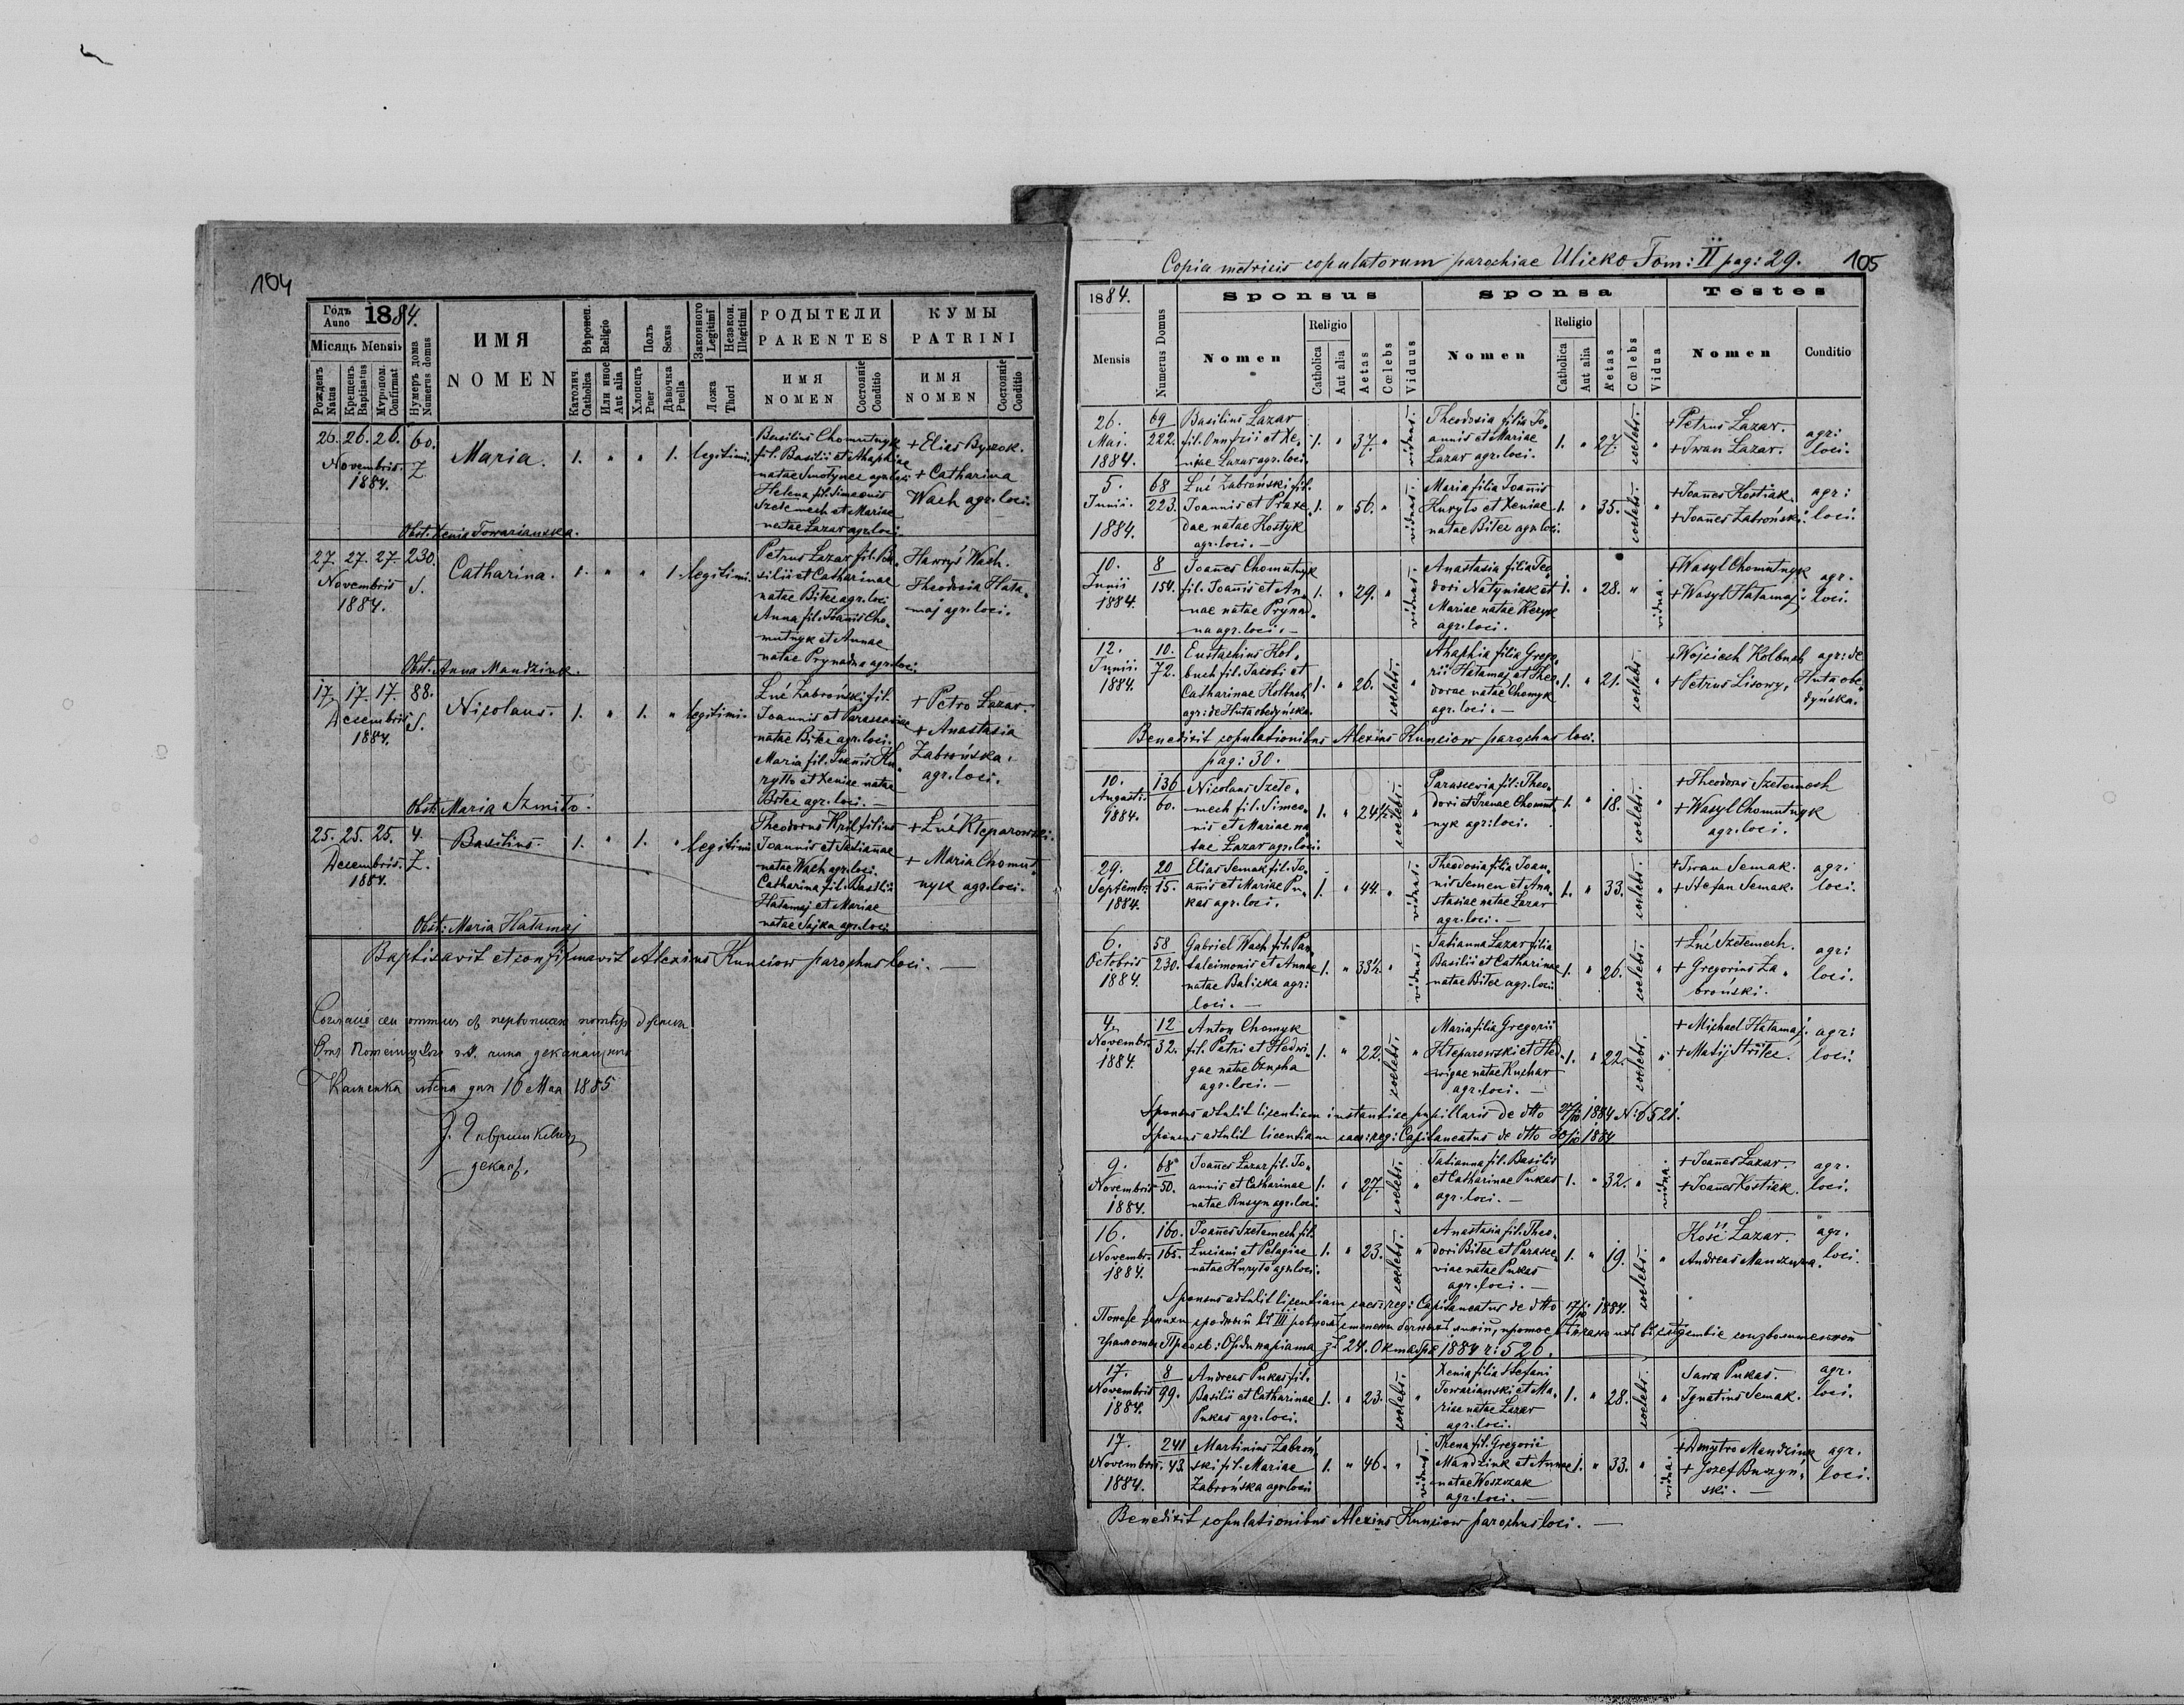 104
Годъ Anno 1884.
Місяць Mensis
Рожденъ Natus
Крещенъ Baptisatus
Мѵропом. Confirmat
Нумеръ дома Numerus domus
ИМЯ
NOMEN
Вѣроисп. Religio
Католич Catholica
Или иное Aut alia
Полъ Sexus
Хлопецъ Puer
Дѣвочка Puella
Законного Legitimi
Незакон. Illegitimi
Ложа Thori
РОДЫТЕЛИ
PARENTES
ИМЯ NOMEN
Состояніе Conditio
КУМЫ
PATRINI
ИМЯ NOMEN
Состояніе Conditio
26. 26. 26. Novembris. 1884.
60. Z.
Maria.
1. " " 1. legitimi.
Basilius Chomutnyk
fil. Basilii et Ahaphiae
natae Smotynec agr. loci
Helena fil. Simeonis
Szetemech et Mariae
natae Lazar agr. loci.
+ Elias Byczok.
+ Catharina
Wach agr. loci.
Obst. Xenia Towarianska.
27. 27. 27. Novembris 1884.
230. S.
Catharina.
1. " " 1. legitimi.
Petrus Lazar fil. Ba„
silii et Catharinae
natae Bitec agr. loci
Anna fil. Joannis Cho„
mutnyk et Annae
natae Prynadna agr. loci.
Hawryś Wach.
Theodosia Hata„
maj agr. loci.
Obst. Anna Mandziuk.
17. 17. 17. Decembris 1884.
88. S.
Nicolaus.
1. " 1. " legitimi.
Łuć Zabroński fil.
Joannis et Parasceviae
natae Bitec agr. loci.
Maria fil. Joannis Ku„
ryllo et Xeniae natae
Bitec agr. loci. —
+ Petro Lazar.
+ Anastasia
Zabrońska.
agr. loci.
Obst: Maria Szmiło.
25. 25. 25. Decembris. 1884.
4. Z.
Basilius.
1. " 1. " legitimi
Theodorus Kril filius
Joannis et Tatiannae
natae Wach agr. loci.
Catharina fil. Basilii
Hatamaj et Mariae
natae Sajka agr. loci
+ Łuć Kleparowski.
+ Maria Chomut„
nyk agr. loci.
Obst: Maria Hatamaj
Baptisavit et confirmavit Alexius Kunciow parochus loci. —
Каменка 16 Мая 1885
декан.
Copia metricis copulatorum parochiae Ulicko Tom: II pag: 29.
105
1884.
Mensis
Numerus Domus
Sponsus
Nomen
Religio
Catholica
Aut alia
Aetas
Cœlebs
Viduus
Sponsa
Nomen
Religio
Catholica
Aut alia
Aetas
Cœlebs
Vidua
Testes
Nomen
Conditio
26. Mai. 1884.
69 222.
Basilius Lazar
fil. Onufrii et Xe„
niae Lazar agr. loci.
1. " 37. " viduus.
Theodosia filia Jo„
annis et Mariae
Lazar agr. loci.
1. " 27. coelebs. "
+ Petrus Lazar.
+ Iwan Lazar.
agr: loci.
5. Junii. 1884.
68 223.
Łuć Zabroński fil.
Joannis et Praxe„
dae natae Kostyk
agr. loci. —
1. " 50. " viduus.
Maria filia Joannis
Kuryło et Xeniae
natae Bitec agr. loci.
1. " 35. coelebs. "
+ Joannes Kostiak.
+ Joannes Zabroński.
agr: loci.
10. Junii 1884.
8 154.
Joannes Chomutnyk
fil. Joannis et An„
nae natae Prynad„
na agr. loci. —
1. " 29. " viduus.
Anastasia filia Teo„
dori Natyniak et
Mariae natae Kecyk
agr. loci.
1. " 28. " vidua.
+ Wasyl Chomutnyk
+ Wasyl Hatamaj.
agr. loci.
12. Junii. 1884.
10. 72.
Eustachius Kol„
buch fil. Jacobi et
Catharinae Kolbuch
agr: de Huta obedyńska.
1. " 26. coelebs. "
Ahaphia filia Grego„
rii Hatamaj et Theo„
dorae natae Chomyk
agr. loci. —
1. " 21. coelebs. "
+ Wojciech Kolbuch
+ Petrus Lisowy.
agr: de Huta obe„
dyńska.
Benedixit copulationibus Alexius Kunciow parochus loci.
pag: 30.
10. Augusti. 1884.
136 60.
Nicolaus Szete„
mech fil. Simeo„
nis et Mariae na„
tae Lazar agr. loci.
1. " 24½ coelebs. "
Parascevia fil. Theo„
dori et Irenae Chomut„
nyk agr: loci.
1. " 18. coelebs. "
+ Theodorus Szetemech
+ Wasyl Chomutnyk
agr. loci.
29. Septembr. 1884.
20 15.
Elias Semak fil. Jo„
annis et Mariae Pu„
kas agr. loci.
1. " 44. " viduus.
Theodosia filia Joan„
nis Semen et Ana„
stasiae natae Lazar
agr. loci. —
1. " 33. coelebs. "
+ Iwan Semak.
+ Stefan Semak.
agr: loci.
6. Octobris 1884.
58 230.
Gabriel Wach fil. Pan„
taleimonis et Annae
natae Baliska agr:
loci. —
1. " 33½. " viduus.
Tatianna Lazar filia
Basilii et Catharinae
natae Bitec agr. loci
1. " 26. coelebs. "
+ Łuć Szetemech.
+ Gregorius Za„
broński.
agr: loci.
4. Novembr. 1884.
12 32.
Anton Chomyk
fil. Petri et Hedwi„
gae natae Czucha
agr. loci. —
1. " 22. coelebs. "
Maria filia Gregorii
Kleparowski et Hed„
wigae natae Kuchar
agr. loci. —
1. " 22. coelebs. "
+ Michael Hatamaj.
+ Matij Strilec.
agr: loci.
Sponsus adtulit licentiam instantiae pupillaris de dtto 27/10 1884 N: 6521.
Sponsus adtulit licentiam caes: reg: Capitaneatus de dtto 30/10 1884.
9. Novembris 1884.
68 50.
Joannes Lazar fil. Jo„
annis et Catharinae
natae Rusyn agr. loci.
1. " 27. coelebs. "
Tatianna fil. Basilii
et Catharinae Pukas
agr. loci. —
1. " 32. " vidua.
+ Joannes Lazar.
+ Joannes Kostiak.
agr. loci.
16. Novembr. 1884.
160. 165.
Joannes Szetemech fil.
Luciani et Pelagiae
natae Kuryło agr. loci.
1. " 23. coelebs. "
Anastasia fil. Theo„
dori Bitec et Parasce„
viae natae Pukas
agr. loci. —
1. " 19. coelebs. "
Kość Lazar.
Andreas Manczura.
agr. loci.
Sponsus adtulit licentiam caes: reg: Capitaneatus de dtto 17/10 1884.
24. Октобра 1884 ч: 526.
17. Novembris 1884.
8 99.
Andreas Pukas fil.
Basilii et Catharinae
Pukas agr. loci.
1. " 23. coelebs. "
Xenia filia Stefani
Towarianski et Ma„
riae natae Lazar
agr. loci.
1. " 28. coelebs. "
Sawa Pukas.
Ignatius Semak.
agr. loci.
17. Novembris. 1884.
241 43.
Martinius Zabroń„
ski fil. Mariae
Zabrońska agr. loci
1. " 46. " viduus.
Irena fil. Gregorii
Mandziuk et Annae
natae Woszczak
agr. loci. —
1. " 33. " vidua.
+ Dmytro Mandziuk
+ Jozef Buczyń„
ski. —
agr. loci.
Benedixit copulationibus Alexius Kunciow parochus loci. —